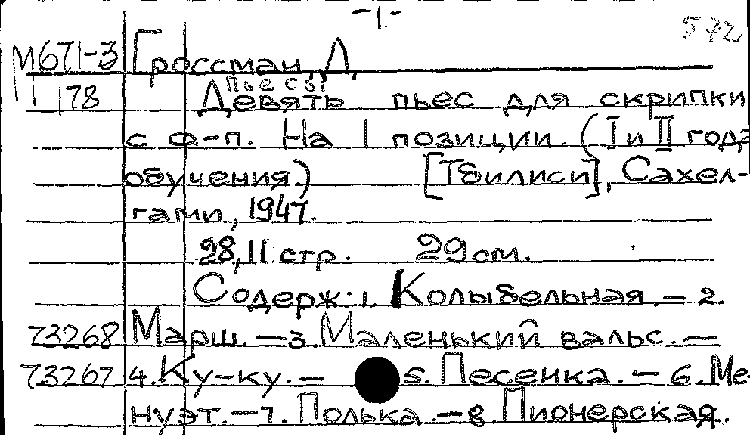 -1.-
572
М671-3 Гроссман, Л.
Пьесы
178 Девять пьес для скрипки
с ф-п. На I позиции. (I и II года
обучения.) [Тбилиси], Сахел-
гами, 1947.
28, II стр. 29 см.
Содерж: 1. Колыбельная. — 2.
73268 Марш. — 3. Маленький вальс. —
73267 4. Ку-ку. — 5. Песенка. — 6. Ме-
нуэт. — 7. Полька. — 8. Пионерская.